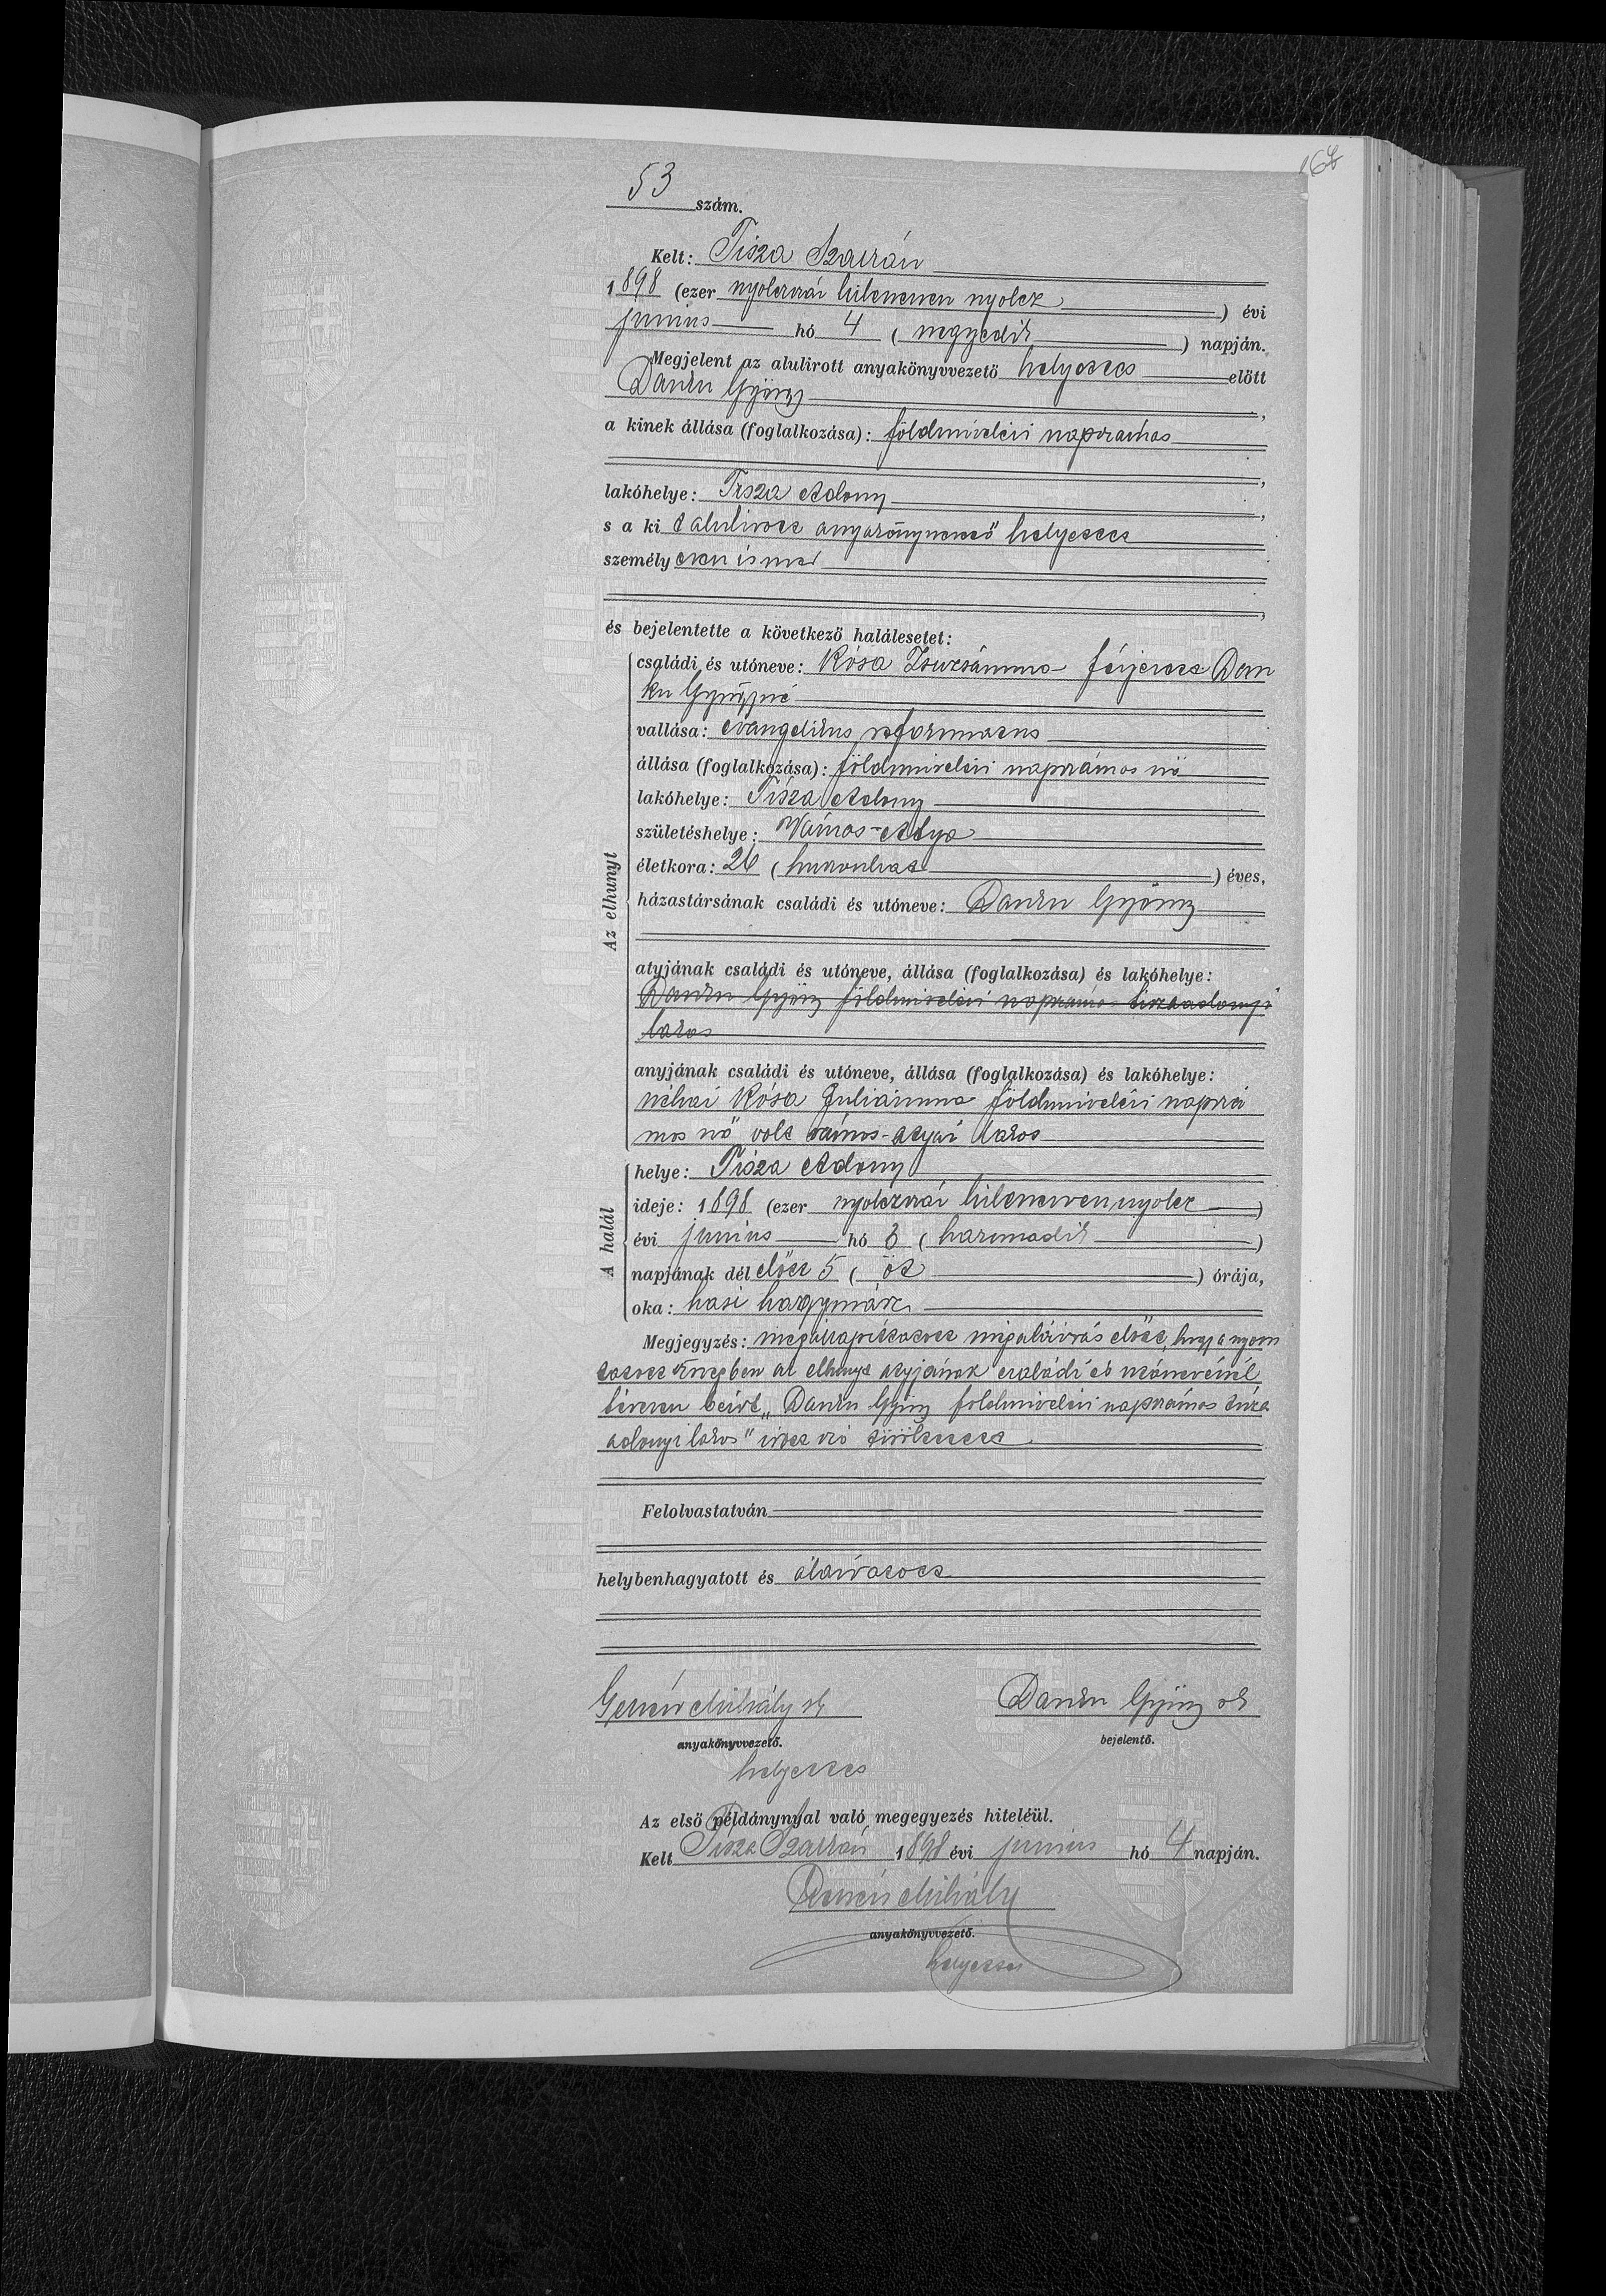 164
53 szám.
Kelt: Tisza Szalkán
1898 (ezer nyolczszáz kilenczven nyolcz) évi
junius hó 4 (negyedik) napján.
Megjelent az alulirott anyakönyvvezető helyettes előtt
Danku György,
a kinek állása (foglalkozása): földmivelési napszámos,
lakóhelye: Tisza Adony,
s a ki t alulirott anyakönyvvezető helyettes
személy esen ismer,
és bejelentette a következő halálesetet:
Az elhunyt
családi és utóneve: Kósa Zsuzsánna férjezett Dan
ku Györgyné
vallása: evangelikus reformatus
állása (foglalkozása): földmivelési napszámos nő
lakóhelye: Tisza Adony
születéshelye: Vámos-Atya
életkora: 26 (huszonhat) éves,
házastársának családi és utóneve: Danku György
atyjának családi és utóneve, állása (foglalkozása) és lakóhelye:
Danku György földmivelési napszámos tiszaadonyi
lakos
anyjának családi és utóneve, állása (foglalkozása) és lakóhelye:
néhai Kósa Juliánna földmivelési napszá
mos nő volt vámos-atyai lakos
A halál
helye: Tisza Adony
ideje: 1898 (ezer nyolczszáz kilenczven nyolcz)
évi junius hó 3 (harmadik)
napjának dél előtt 5 (öt) órája,
oka: hasi hagymáz
Megjegyzés: megállapíttatott aláirás előtt, hogy a nyom
tatott szövegben az elhunyt atyjának családi és utónevénél
tévesen beirt "Danku György földmivelési napszámos tisza
adonyi lakos" irott szó töröltetett.
Felolvastatván
helybenhagyatott és aláíratott
Mihály sk
Danku György sk
anyakönyvvezető.
bejelentő.
helyettes
Az első példánynyal való megegyezés hiteléül.
Kelt Tisza Szalkán 1898 évi junius hó 4 napján.
Mihály
anyakönyvvezető.
helyettes